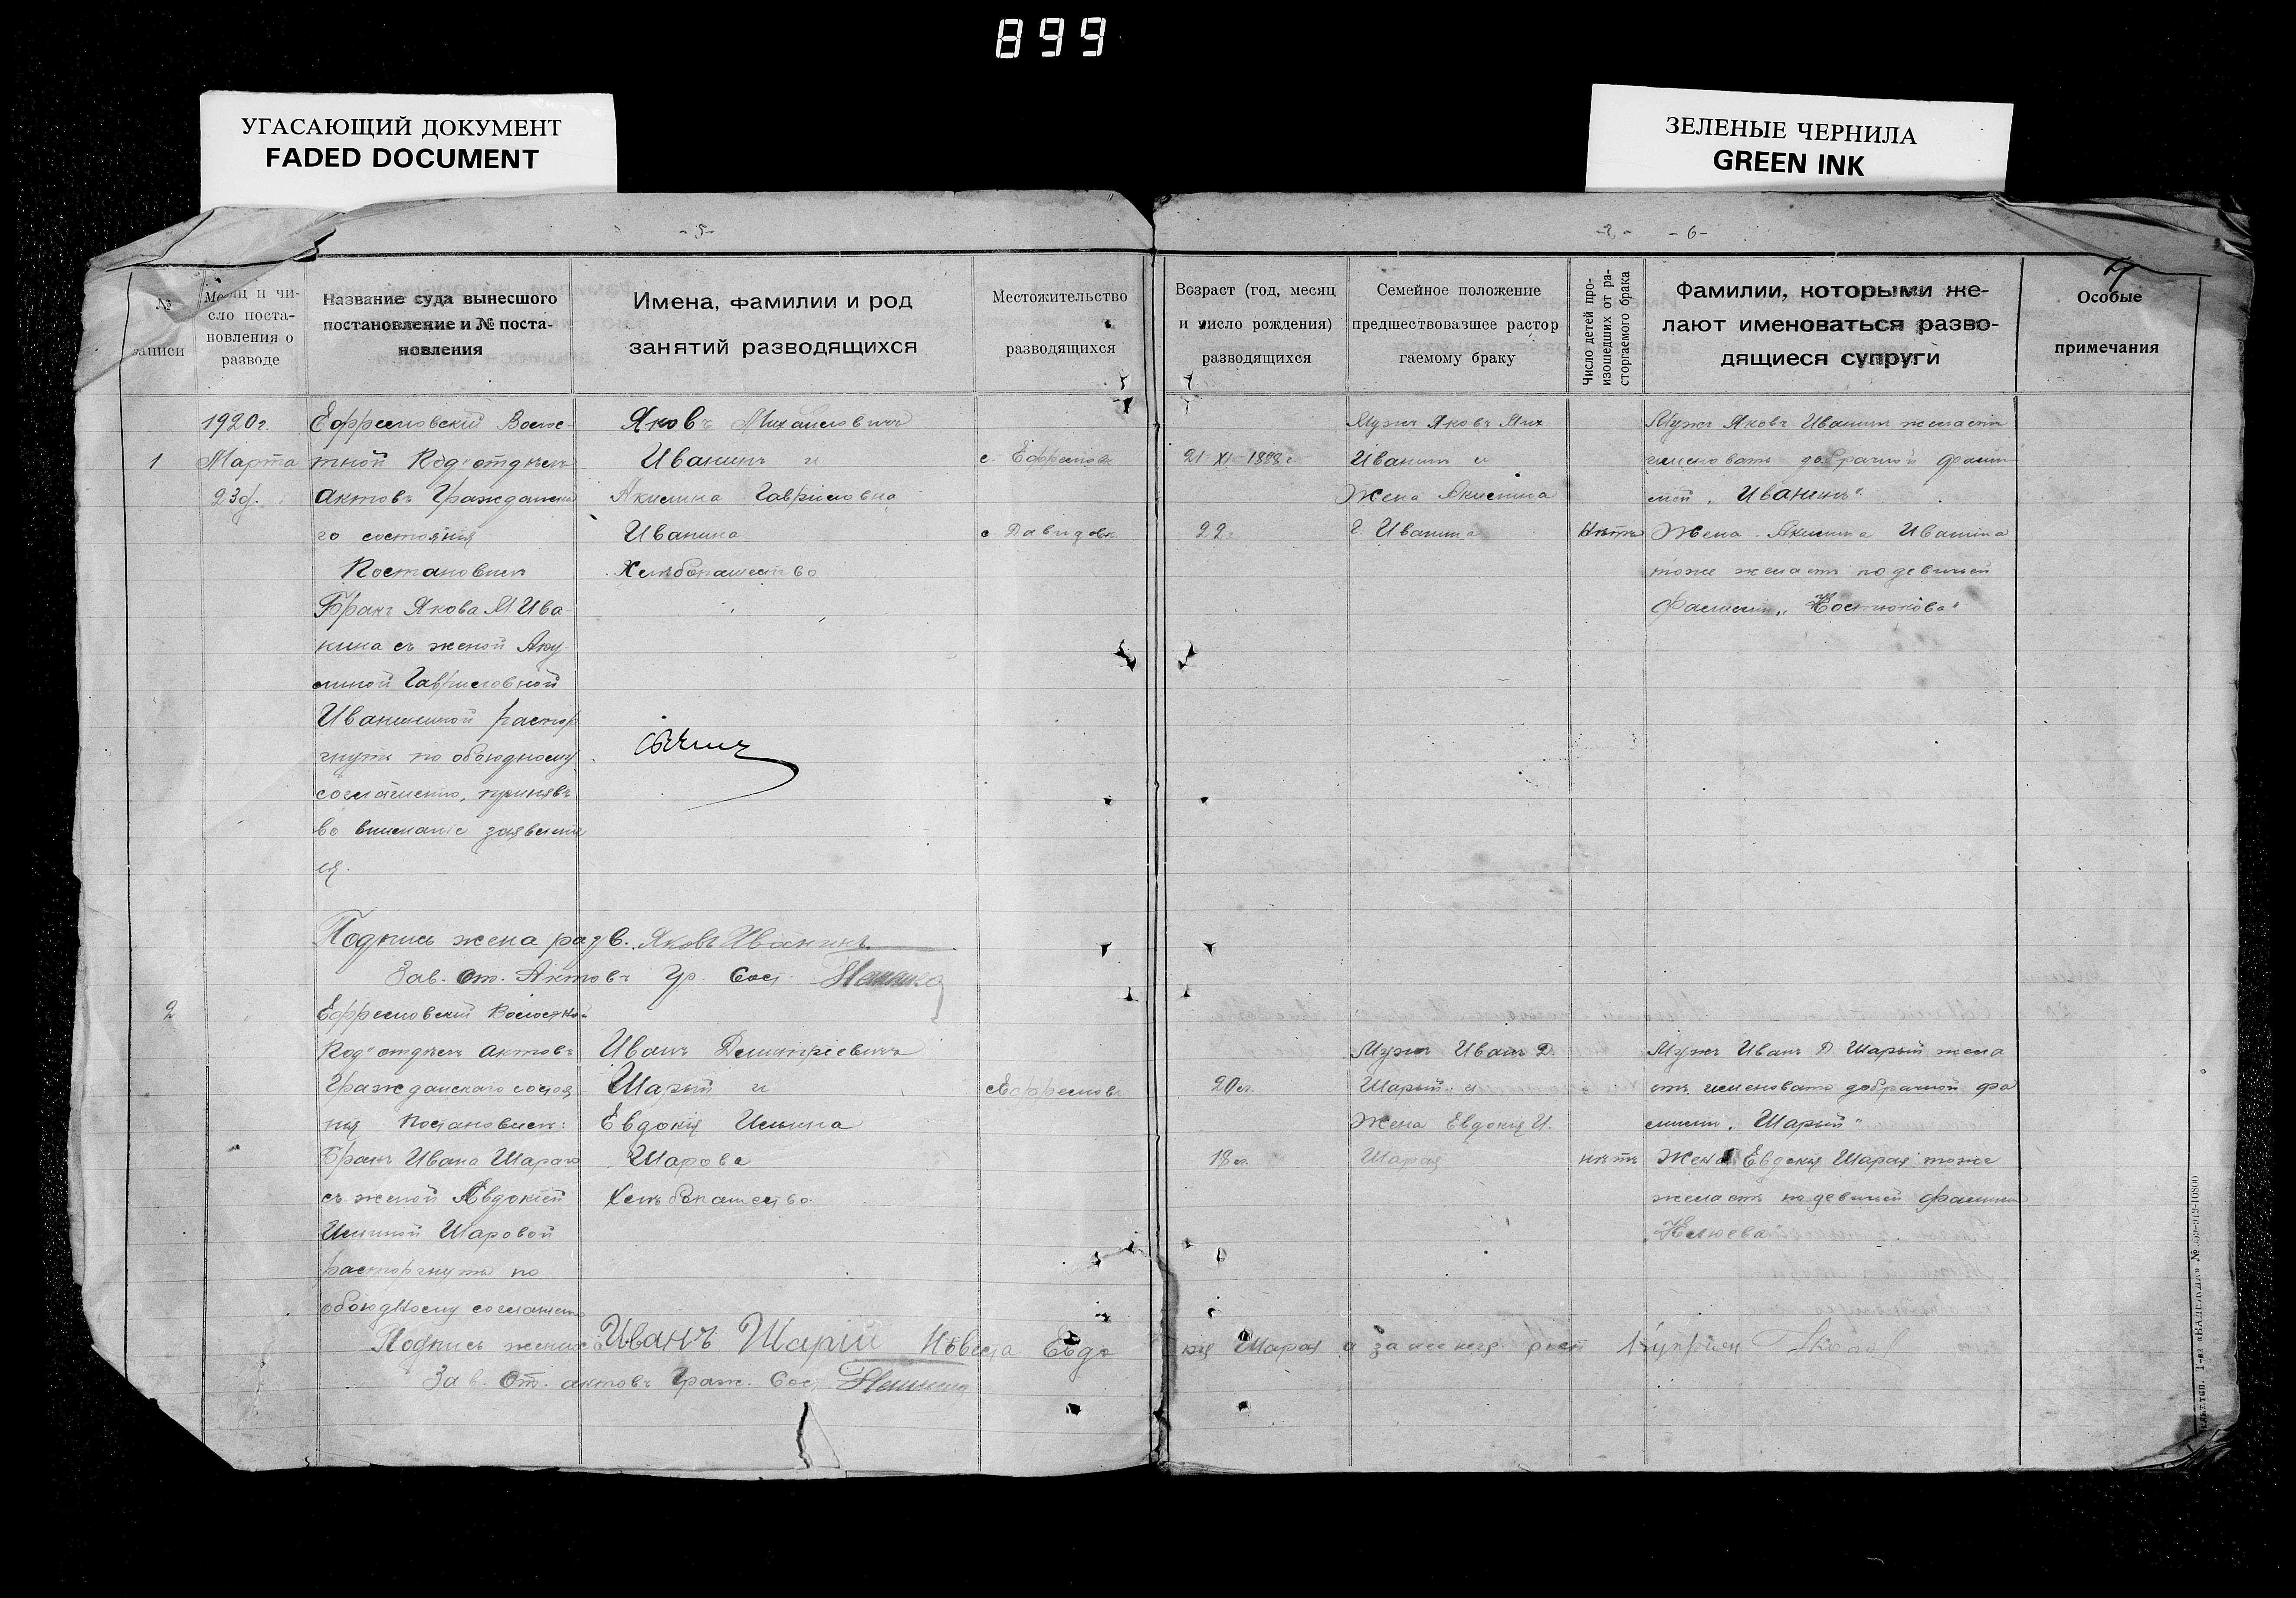 899
УГАСАЮЩИЙ ДОКУМЕНТ
FADED DOCUMENT
ЗЕЛЕНЫЕ ЧЕРНИЛА
GREEN INK
- 5 -
- 6 -
№
записи
Месяц и чи-
сло поста-
новления о
разводе
Название суда вынесшого
постановление и № поста-
новления
Имена, фамилии и род
занятий разводящихся
Местожительство
разводящихся
Возраст (год, месяц
и число рождения)
разводящихся
Семейное положение
предшествовавшее растор
гаемому браку
Число детей про-
изошедших от ра-
сторгаемого брака
Фамилии, которыми же-
лают именоваться разво-
дящиеся супруги
Особые
примечания
1
1920г.
Марта
23д.
Ефремовский Волос-
тной Подъотделъ
актовъ Гражданска
го состоянiя
Постановилъ
Бракъ Якова М Ива
нина съ женой Аку
линой Гавриловной
Иваниной растор
гнуть по обоюдному
соглашенiю, принявъ
во вниманiе заявленiе
Яковъ Михайловичъ
Иванинъ и
Акилина Гавриловна
Иванина
Хлебопашество
с. Ефремов
с Давидов
21 XI 1888 г
22
Мужъ Яковъ Мих
Иванинъ и
Жена Акилина
Г. Иванина
Нетъ
Мужъ Яковъ Иванинъ желаетъ
именоват добрачной фами
лией „Иванинъ“
Жена Акилина Иванина
тоже желаетъ по девичьей
фамилiи „Костюкова“
Подпись жена разв. Яковъ Иванинъ
Зав. От. Актовъ Гр. Сост.
2
Ефремовский Волостной
Под отделъ актовъ
Гражданскаго состоя
нiя Постановилъ:
Бракъ Ивана Шараго
съ женой Авдокiей
Ильиной Шаровой
расторгнуть по
обоюдному соглашенiю
Иванъ Дмитрiевичъ
Шарый и
Евдокiя Ильина
Шарова
Хлебопашество.
с Ефремов
20 л.
18 л.
Мужъ Иванъ Д
Шарый и
Жена Евдокiя И.
Шарая
нетъ
Мужъ Иванъ Д Шарый жела
етъ именовать добрачной фа
милии „Шарый“
Жена Евдокiя Шарая тоже
желаетъ по девичьей фамилии
Подпись жениха Иванъ Шарiй Невеста Евдо
кiя Шарая а за нея
Зав. От. актовъ Граж. Сост